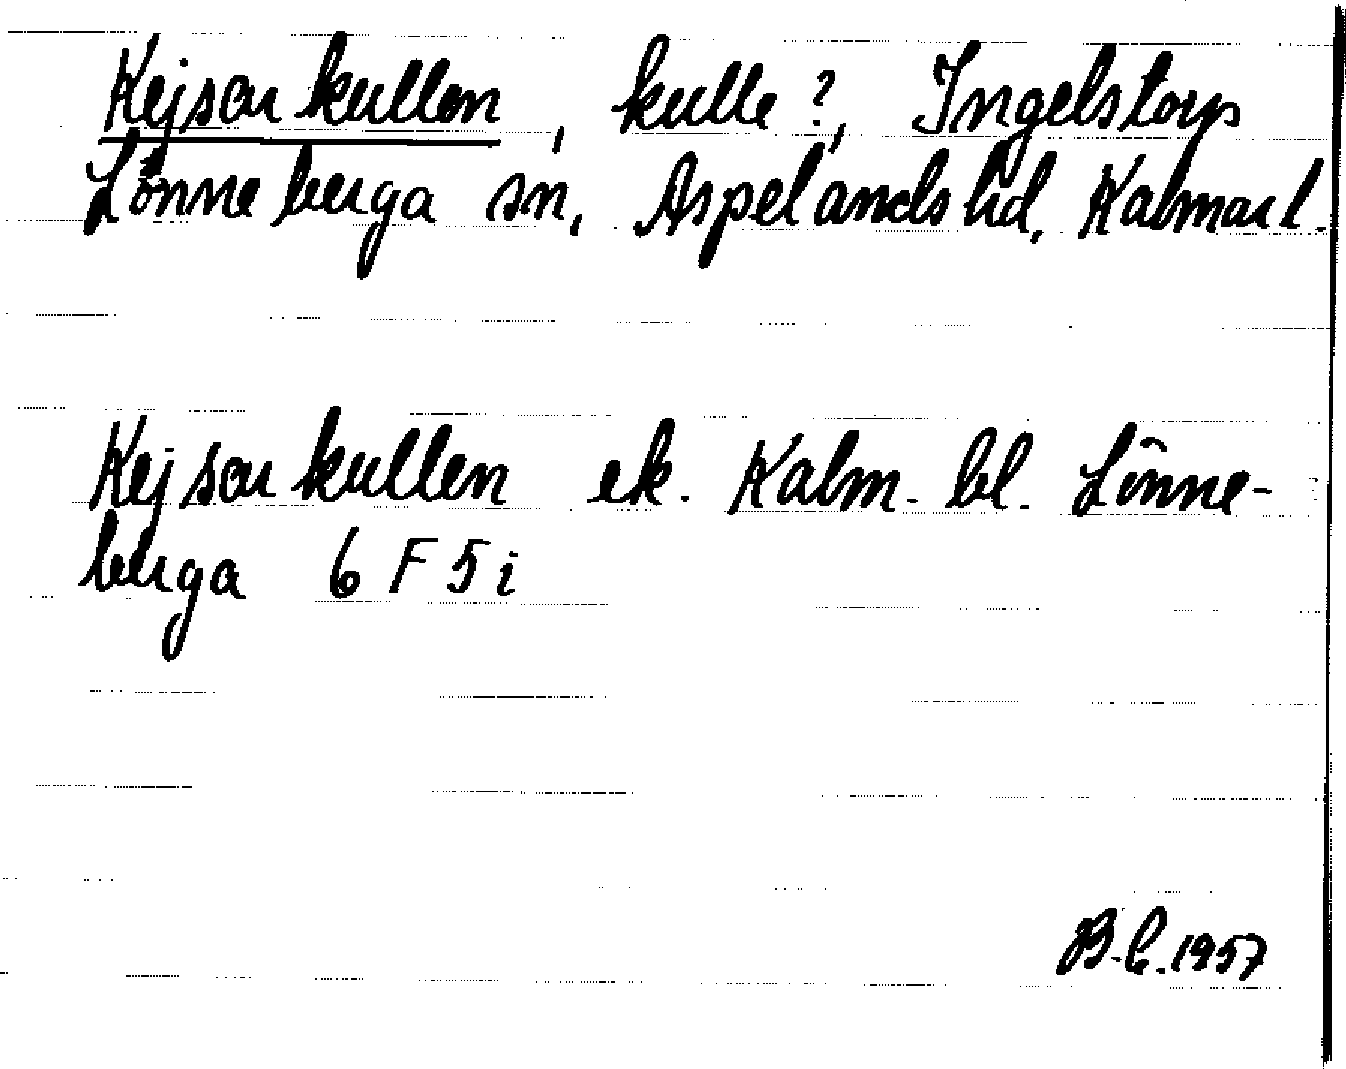 Kejsarkullen, kulle?, Ingelstorp
Lönneberga sn, Aspelands hd, Kalmar l.
Kejsarkullen ek. Kalm. bl. Lönne-
berga 6 F 5 i
B. C. 1957